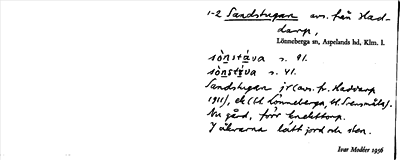 1-2 Sandstugan avs. från Had-
darp,
Lönneberga sn, Aspelands hd, Klm. l.
sò̀nstáva v. 91.
sò̀nstɨ́va v. 41.
Sandstugan jr (avs. fr. Haddarp
1911), ek (bl Lönneberga, bl. Svensmåla).
Nu gård, förr
Y åkrarna lätt jord och sten.
Ivar Modéer 1936